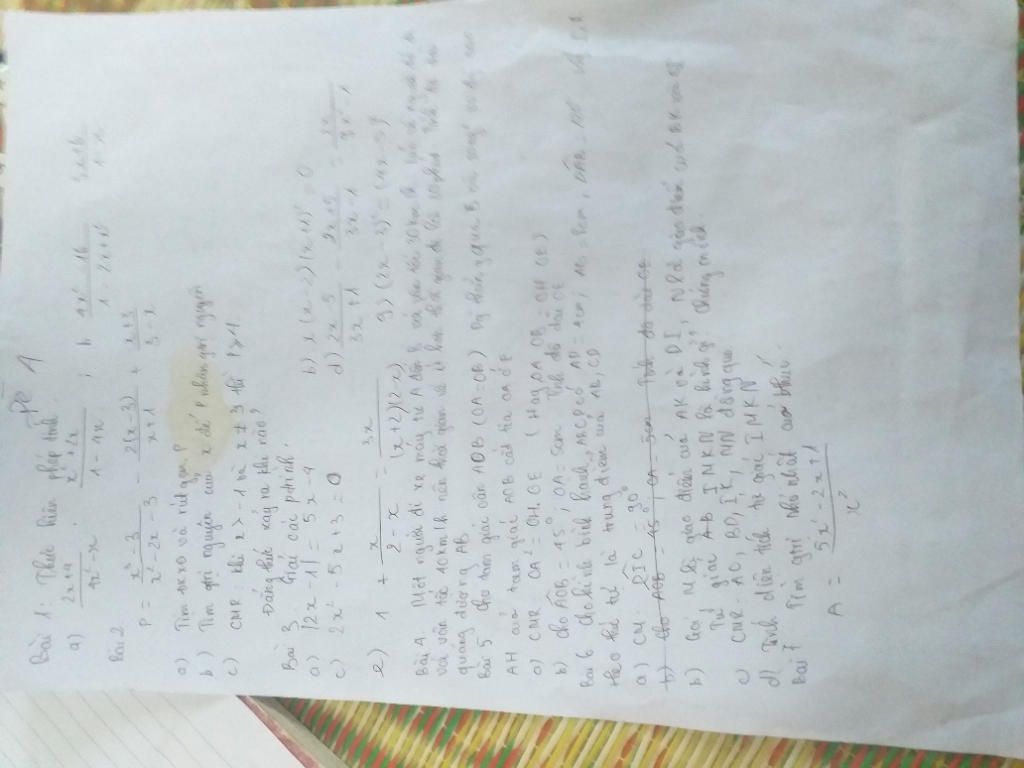 Đề 1
Bài 1: Thực hiện phép tính.
a) 2x+4 / 4x²-x : x²+2x / 1-4x ; b 4x²-16 /
Bài 2
P = x²-3 / x²-2x-3 - 2(x-3) / x+1 + x+3 / 3-x
a) Tìm ĐKXĐ và rút gọn P
b) Tìm gtrị nguyên của x để P nhận giá trị nguyên
c) CMR: khi x > -1 và x ≠ 3 thì P ≥ 4.
Đẳng thức xảy ra khi nào?
Bài 3 Giải các ptrình.
a) |2x-1| = 5x-4 b) x(x-2)(x+1)² = 0
c) 2x²-5x+3=0 d) 2x-5 / 3x+1 - / 3x-1 = / 9x²-1
e) 1 + x / 2-x = 3x / (x+2)(2-x) g) (2x-3)² = (4x-5)²
Bài 4. Một người đi xe máy từ A đến B với vận tốc 30km/h
với vận tốc 40km/h nên thời gian về ít hơn thời gian đi là Tính
quãng đường AB
Bài 5 cho tam giác cân AOB (OA=OB) Đg thẳng qua B và song
AH của tam giác AOB cắt tia OA ở E
a) CMR OA² = OH.OE (Hay OA.OB = OH.OE)
b) Cho AOB = 45°; OA = 5cm Tính độ dài OE
Bài 6 Cho hình bình hành ABCD có AD = 4cm, AB = 8cm,
theo thứ tự là trung điểm của AB, CD
a) CM: DIC = 90°
b) Cho AOB = 45°, OA = 5cm Tính độ dài OE
b) Gọi M là giao điểm của AK và DI, N là giao điểm của BK và CI
Tứ giác A-B I MKN là hình gì? chứng minh
c CMR: AC, BD, IK, MN đồng quy.
d) Tính diện tích tứ giác IMKN
Bài 7 Tìm gtrị nhỏ nhất của bthức.
A = 5x²-2x+1 / x²